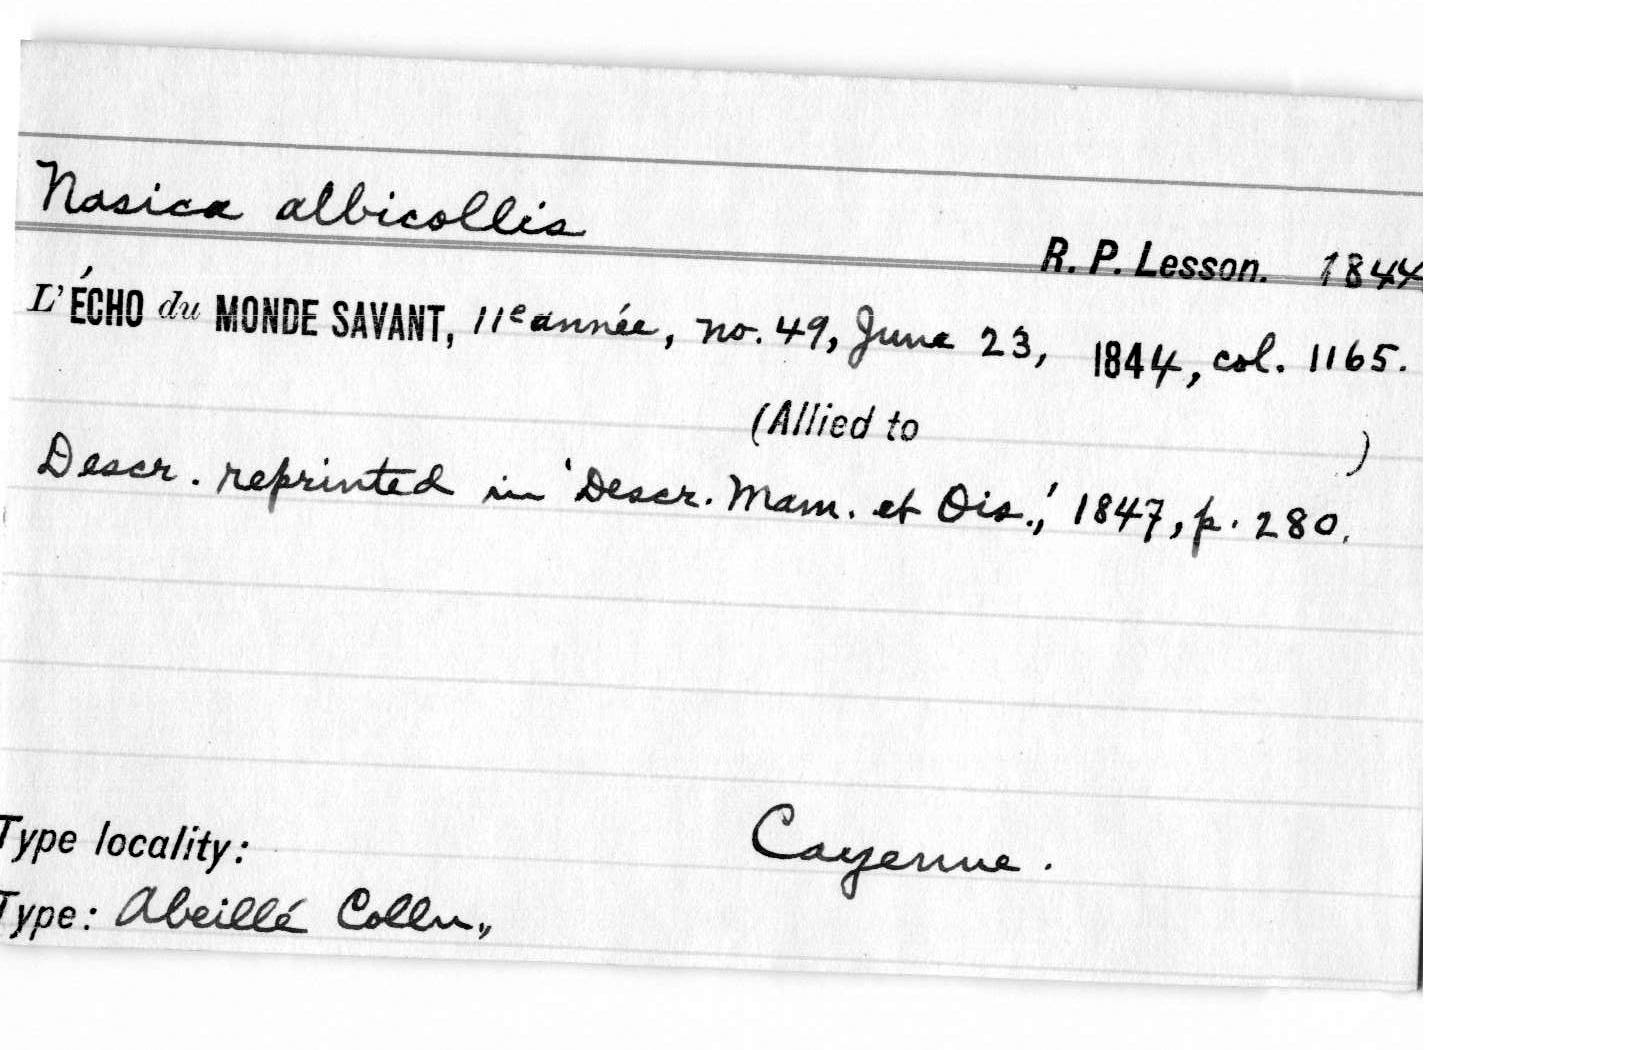 Nasica albicollis
R. P. Lesson. 1844
L'ÉCHO du MONDE SAVANT, 11e année, no. 49, June 23, 1844, col. 1165.
(Allied to )
Descr. reprinted in 'Descr. Mam. et Ois.,' 1847, p. 280.
Type locality: Cayenne.
Type: Abeillé Colln.,